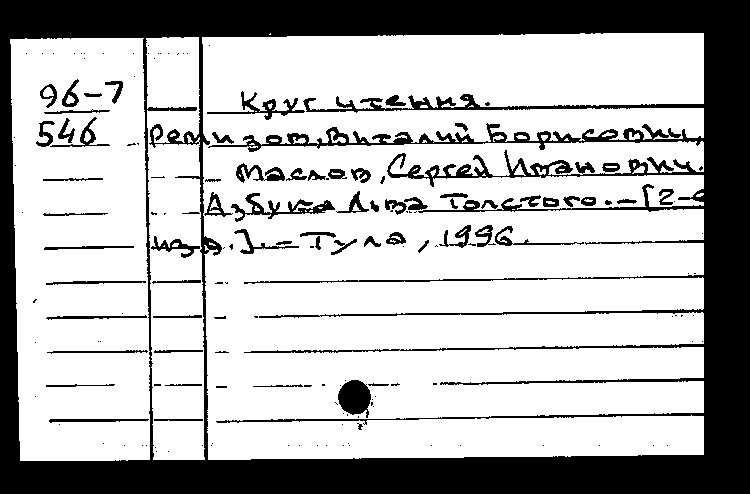 96-7
546
Круг чтения.
Ремизов, Виталий Борисович,
Маслов, Сергей Иванович.
Азбука Льва Толстого. – [2-е
изд.]. – Тула, 1996.